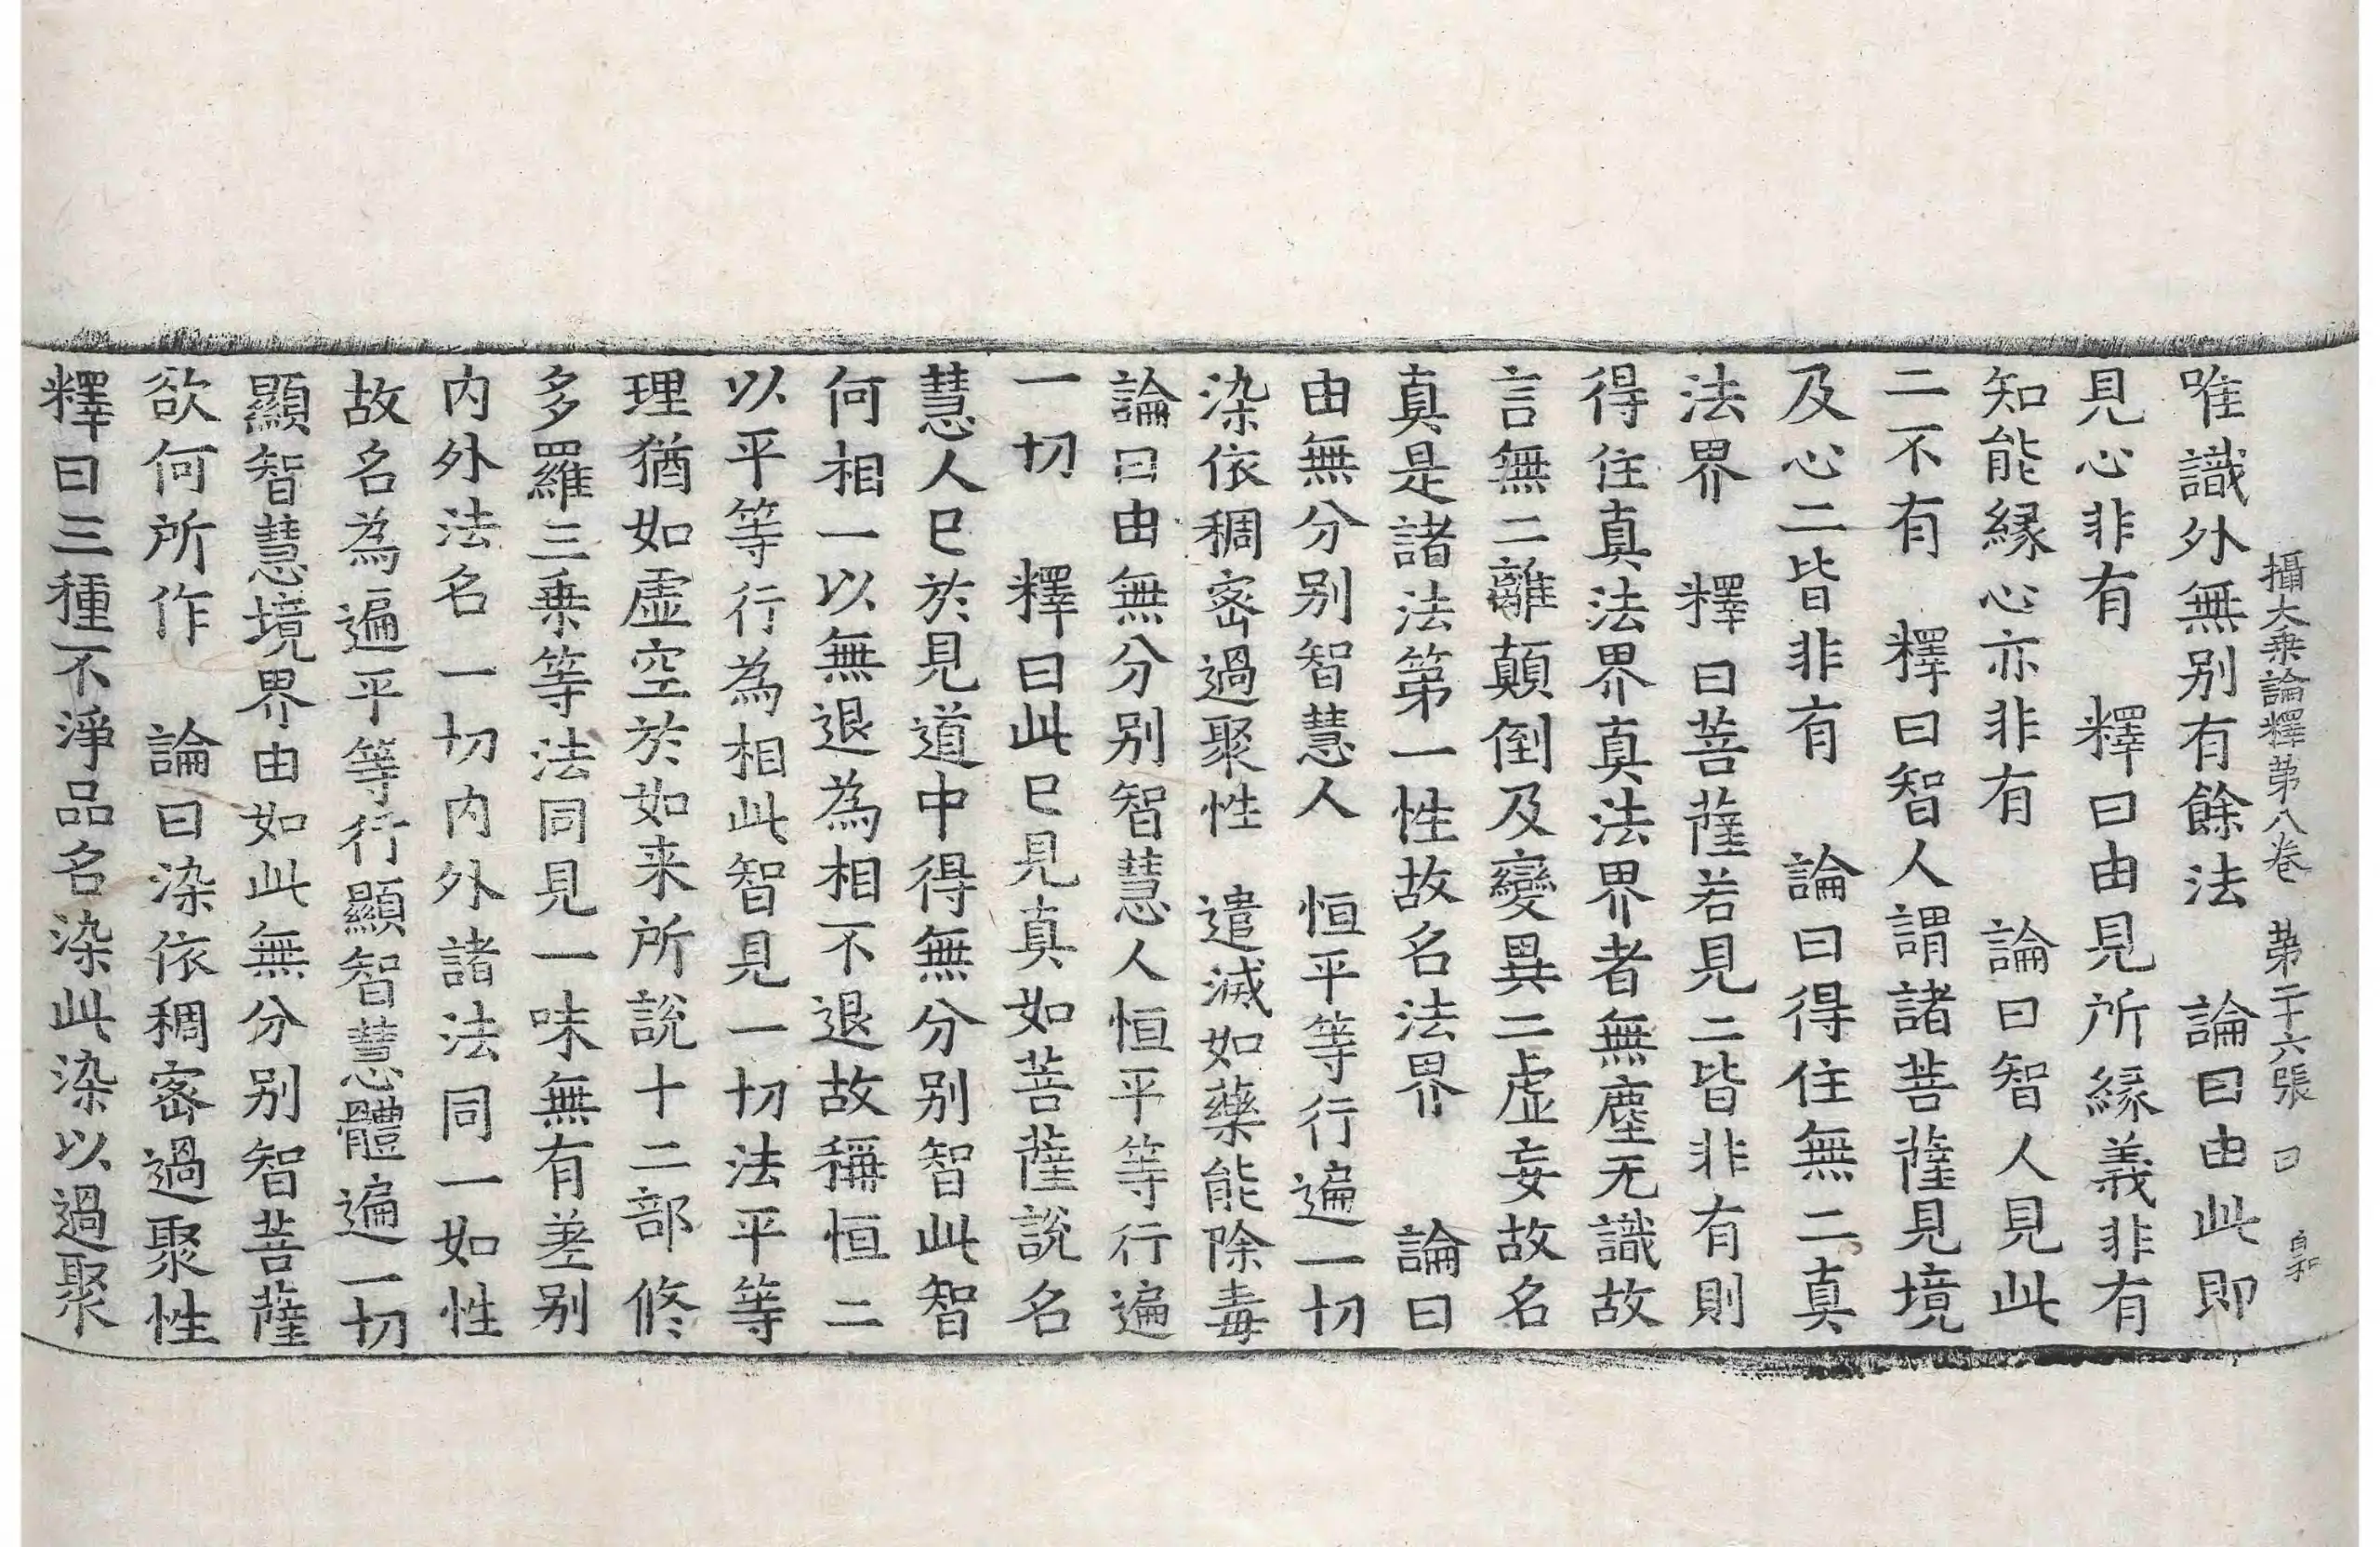 攝大乗論釋苐八巻　苐二十六張　曰　自和
唯識外無别有餘法　論曰由此即
見心非有　釋曰由見所縁義非有
知能縁心亦非有　論曰智人見此
二不有　釋曰智人謂諸菩薩見境
及心二皆非有　論曰得住無二真
法界　釋曰菩薩若見二皆非有則
得住真法界真法界者無塵无識故
言無二離顛倒及變異二虚妄故名
真是諸法第一性故名法界　論曰
由無分别智慧人　恒平等行遍一切
染依稠密過聚性　遣滅如藥能除毒
論曰由無分别智慧人恒平等行遍
一切　釋曰此已見真如菩薩說名
慧人已於見道中得無分别智此智
何相一以無退為相不退故稱恒二
以平等行為相此智見一切法平等
理猶如虚空於如来所說十二部修
多羅三乗等法同見一味無有差别
内外法名一切内外諸法同一如性
故名為遍平等行顯智慧體遍一切
顯智慧境界由如此無分别智菩薩
欲何所作　論曰染依稠密過聚性
釋曰三種不淨品名染此染以過聚